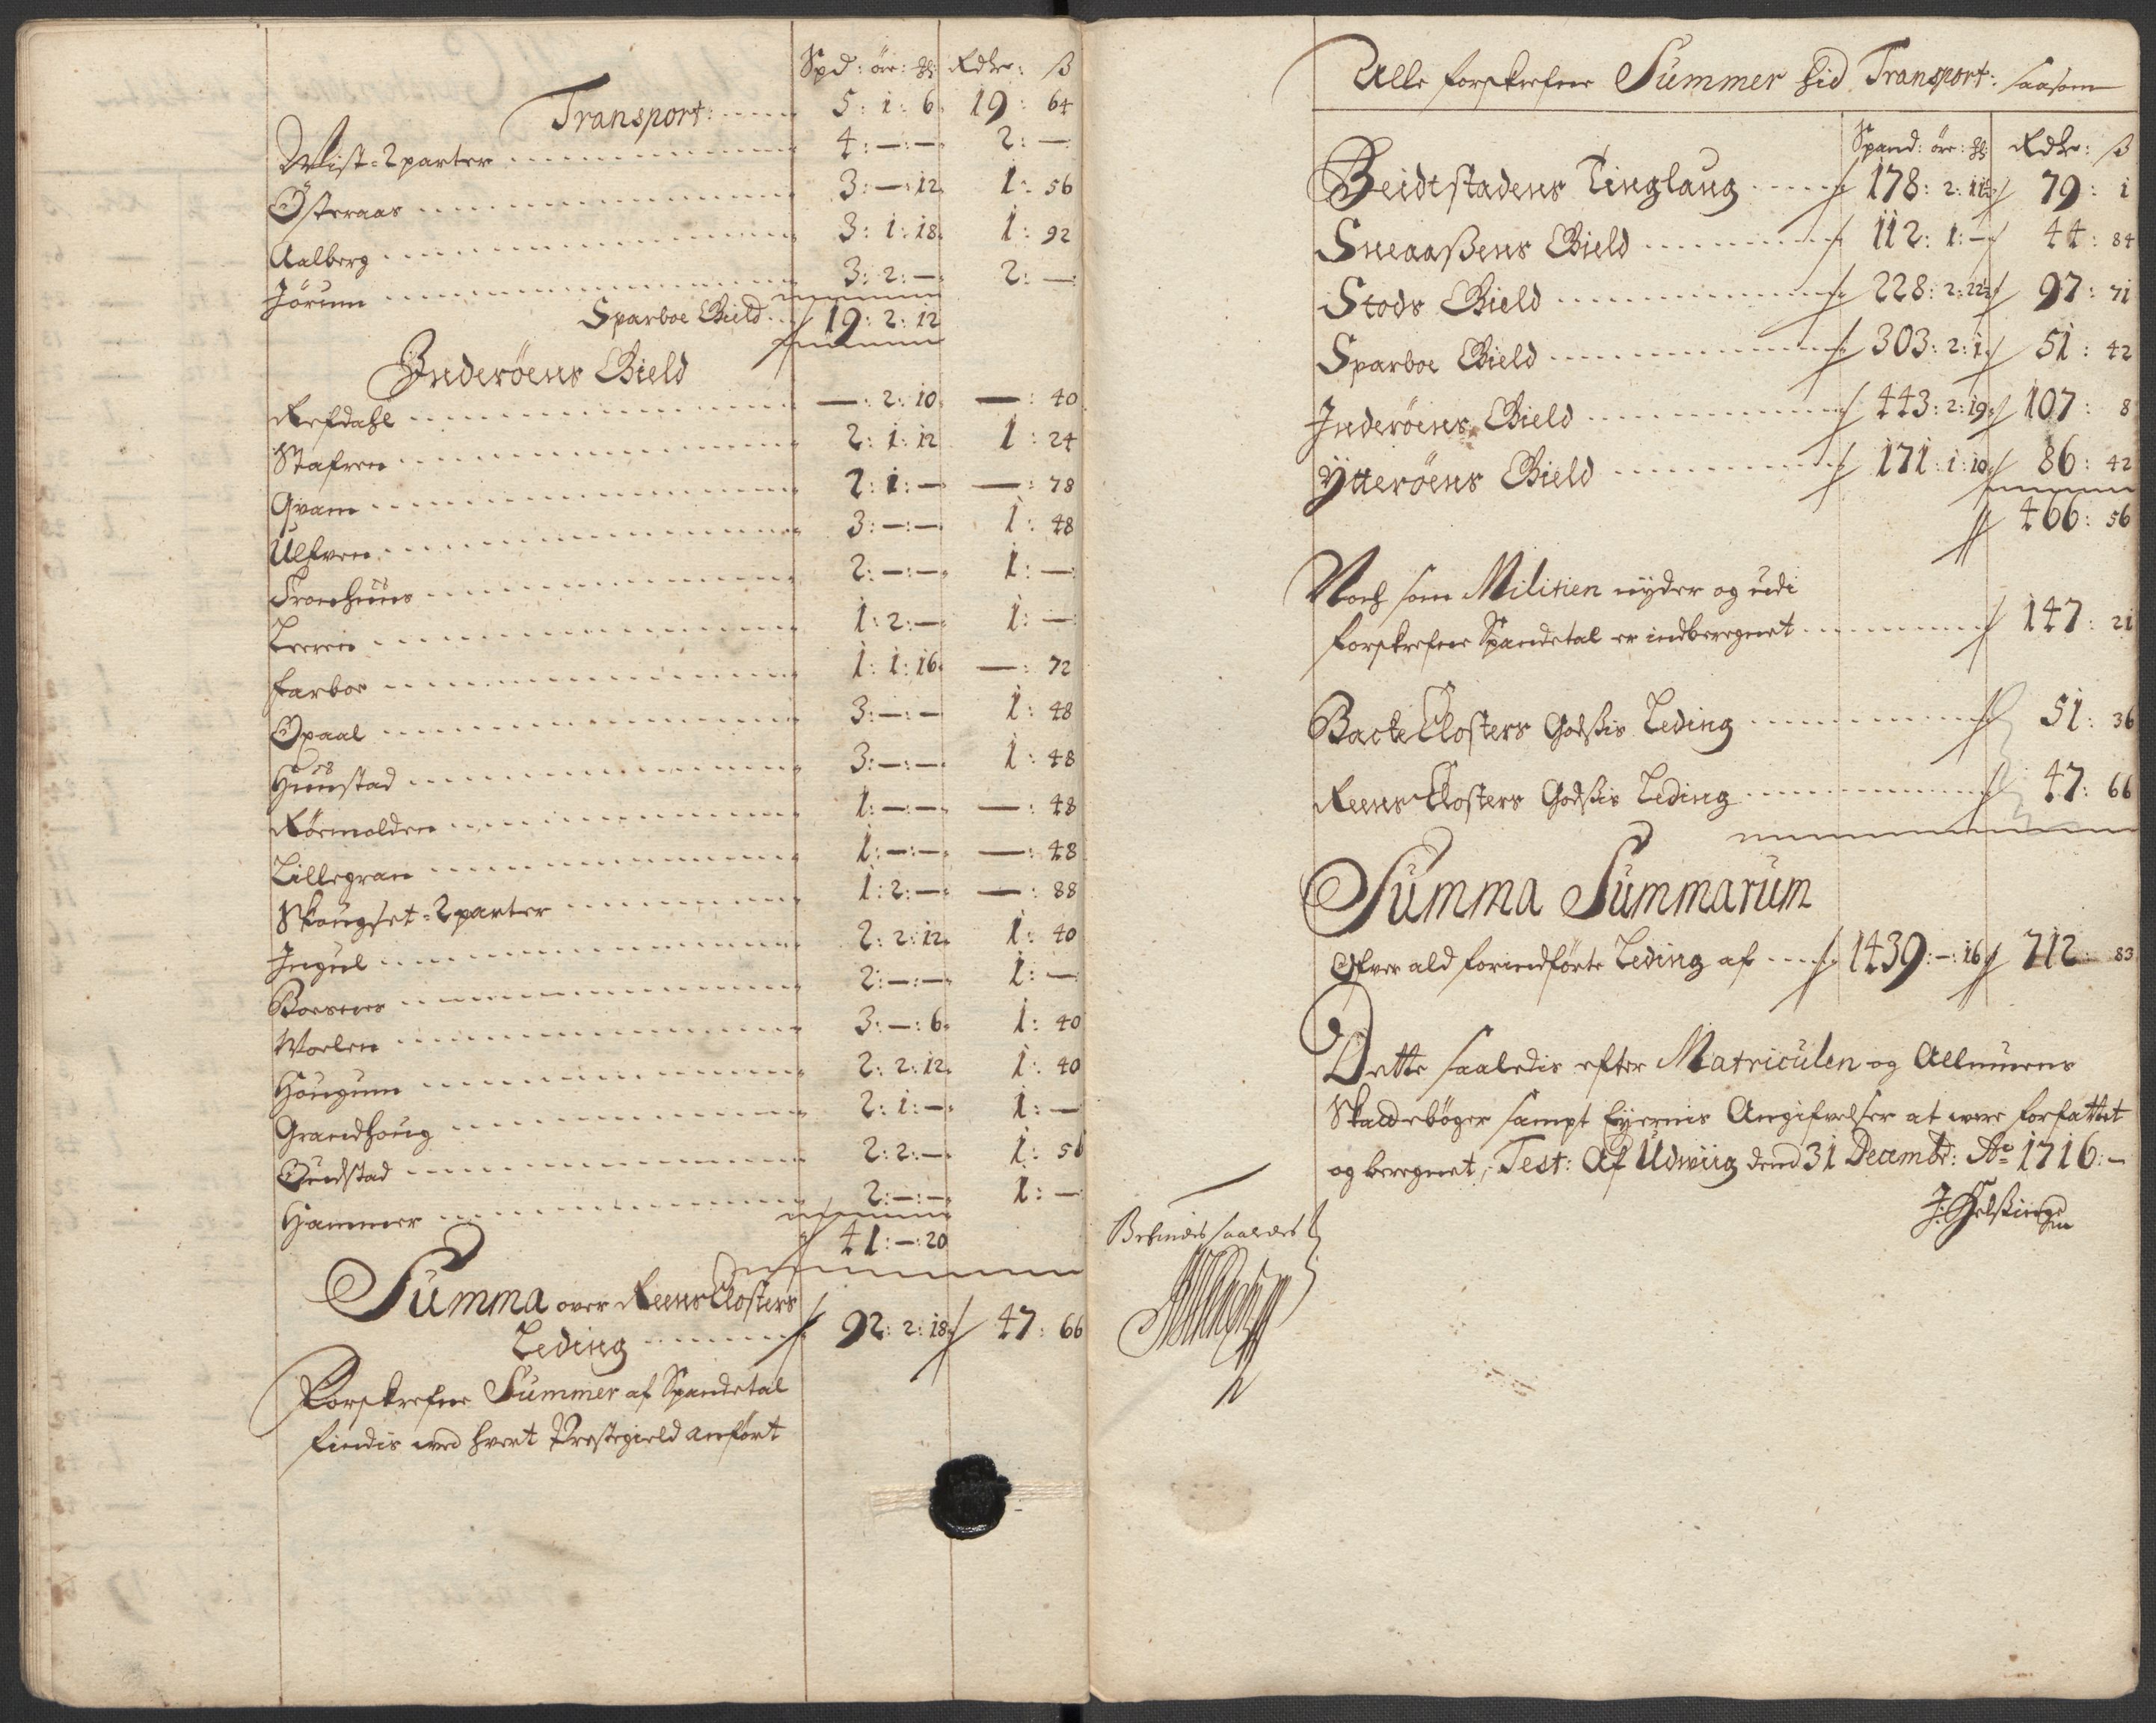 Spd: öre: Rdlr: ß
Transport: 5: 1: 6: 19: 64
Wist-2 parter 4: —: — 2: —
Österaas 3: —: 12 1: 56
Aalberg 3: 1: 18 1: 92
Jörum 3: 2: — 2: —
Sparboe Gield 19: 2: 12
Inderöens Gield
Refdahl —: 2: 10 —: 40
Stafren 2: 1: 12 1: 24
Qvam 2: 1: — —: 78
Ulfven 3: —: — 1: 48
Tronhuus 2: —: — 1: —
Leeren 1: 2: — 1: —
Farboe 1: 1: 16 —: 72
Opaal 3: —: — 1: 48
Huustad 3: —: — 1: 48
Rörmolden 1: —: — —: 48
Lillegran 1: —: — —: 48
Skougset-2 parter 1: 2: — —: 88
Ingul 2: 2: 12 1: 40
Boesnes 2: —: — 1: —
Woelen 3: —: 6 1: 40
Hougum 2: 2: 12 1: 40
Grandhoug 2: 1: — 1: —
Qundstad 2: 2: — 1: 56
Hammer 2: —: — 1: —
41: —: 20
Summa over Reens Closters
Leding 92: 2: 18 47: 66
Forskrefne Summer af Spandetal
findis wed hvert Prestegield anfört
Alle forskrefne Summer hid Transport: saasom
Spand: öre: Rdlr: ß
Beidtstadens Tinglaug 178: 2: 11½ 79: 1
Sneaaßens Gield 112: 1: — 44: 84
Stods Gield 228: 2: 22½ 97: 71
Sparboe Gield 303: 2: 1 51: 42
Inderöens Gield 443: 2: 19 107: 8
Ytteröens Gield 171: 1: 10 86: 42
466: 56
Noch som Militien nyder og udi
forskrefne Spandetal er indberegnet 147: 21
Backe Closters Godßis Leding 51: 36
Reens Closters Godßis Leding 47: 66
Summa Summarum
Ofver ald forindförte Leding af 1439: —: 16 712: 83
Dette saaledis efter Matriculen og Allmuens
Skatdebøger sampt Eyernis Angifvelser at were forfattet
og beregnet, Test: Af Udwiig dend 31 Decembr: Ao 1716: —
Befindes saaledes